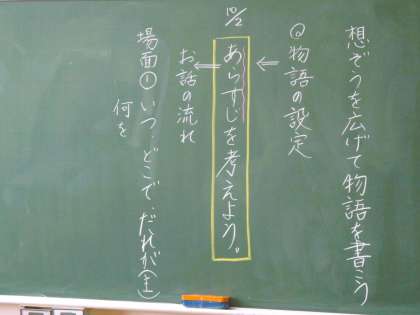 想ぞうを広げて物語を書こう
◎物語の設定
⇐
10/2
あらすじを考えよう。
⇐
お話の流れ
場面①いつ、どこで、だれが(主)
何を